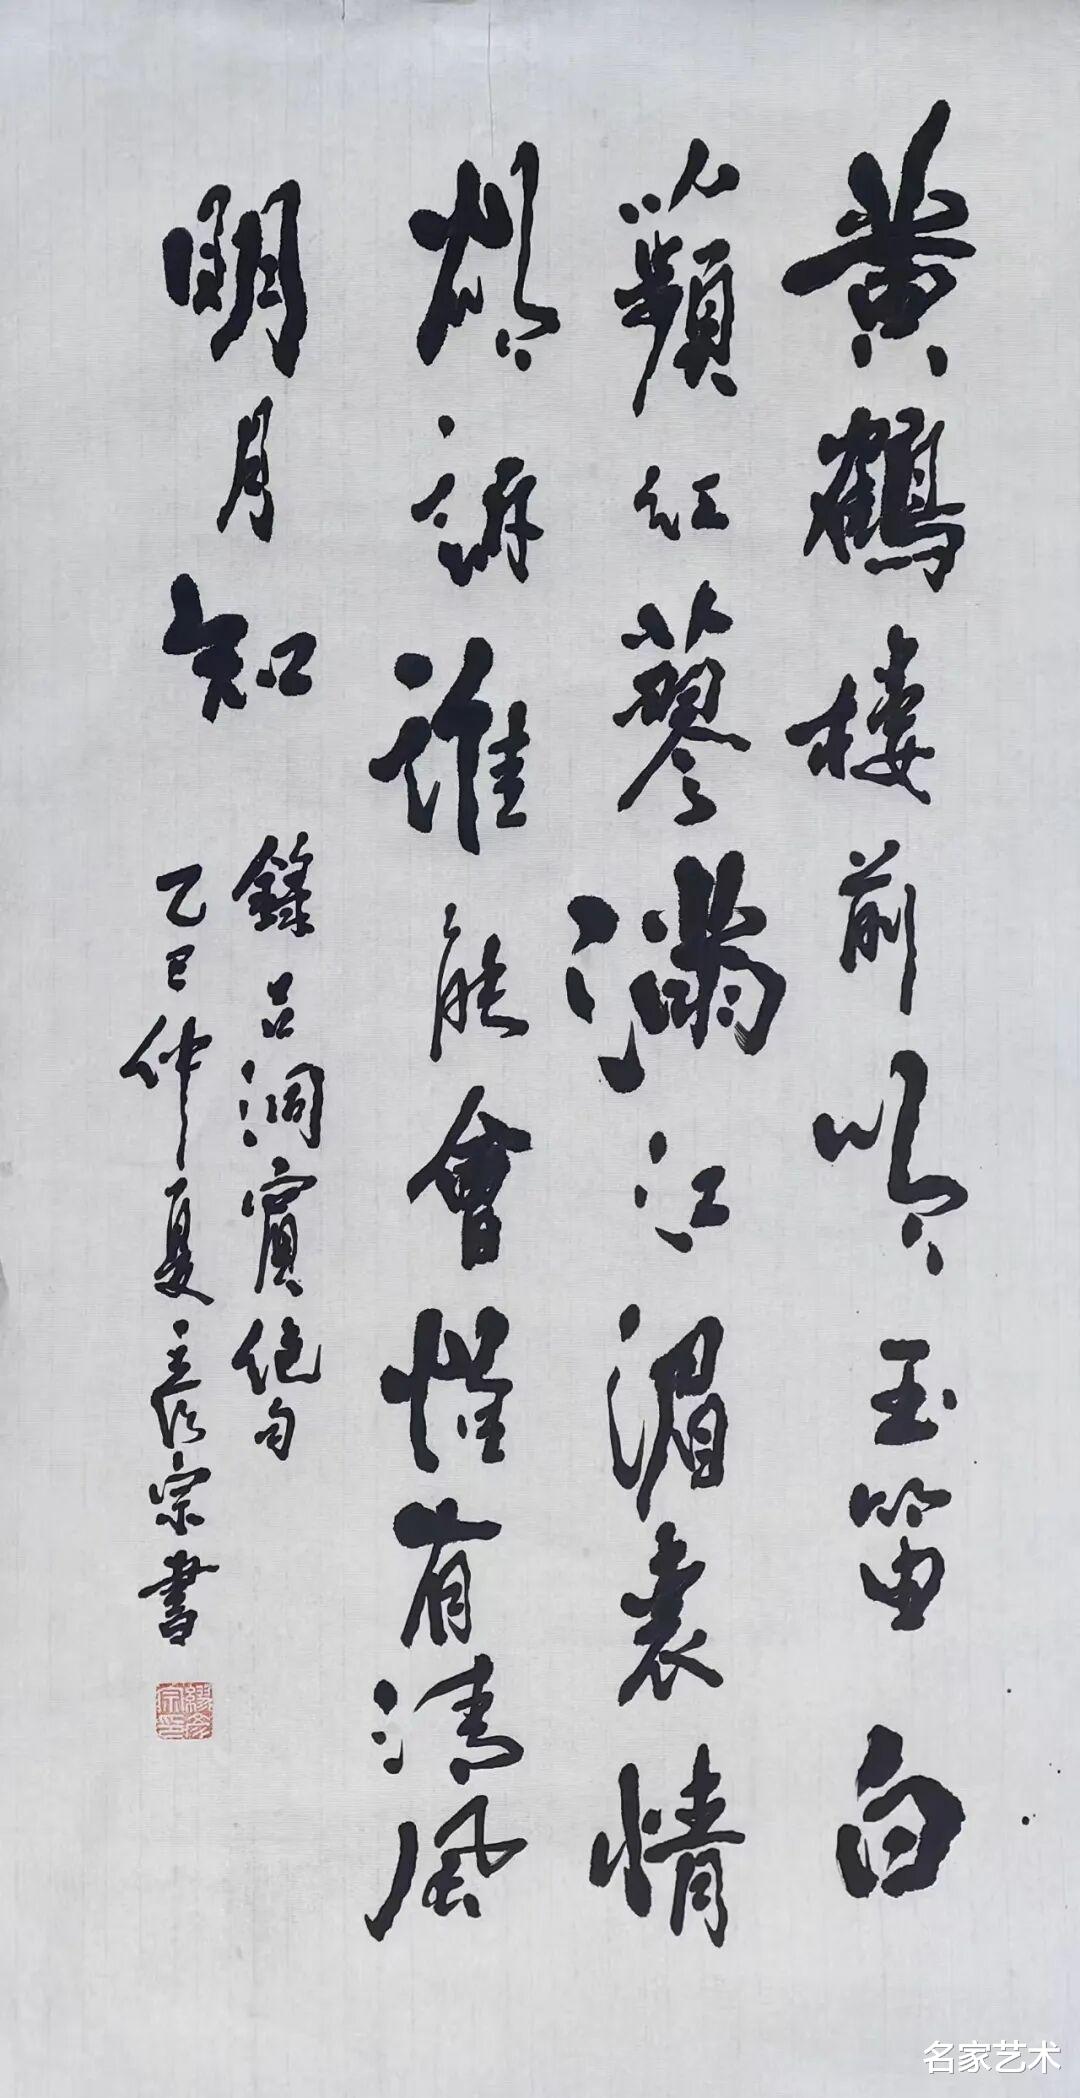 黄鶴楼前吹玉笛白
蘋紅蓼滿江湄衷情
欲訴誰能會惟有清風
明月知
錄吕洞賓絶句
乙巳仲夏彦宗書
名家艺术